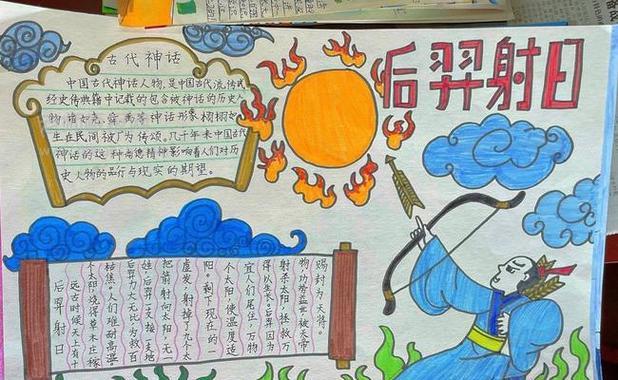 后羿射日
古代神话
中国古代神话人物,是中国古代流传或
经史传典籍中记载的包含被神话的历史人
物,诸如尧、舜、禹等神话形象栩栩如
生在民间被广为传颂,几千年来中国古代
神话的这种高德精神影响着人们对历
史人物的品行与现实的期望。
后羿射日
远古时候天上有十
个太阳,烧得草木庄稼
枯焦,人们难耐高温。
后羿力大无比,为救百
姓,后羿一支接一支地
把箭射向太阳,无
虚发,射掉了九个太
阳。剩下现在的一
个太阳,使温度适
宜人们居住,万物
得以生长。后羿因为
射杀太阳,拯救万
物功劳盖世被天帝
赐封为天将。